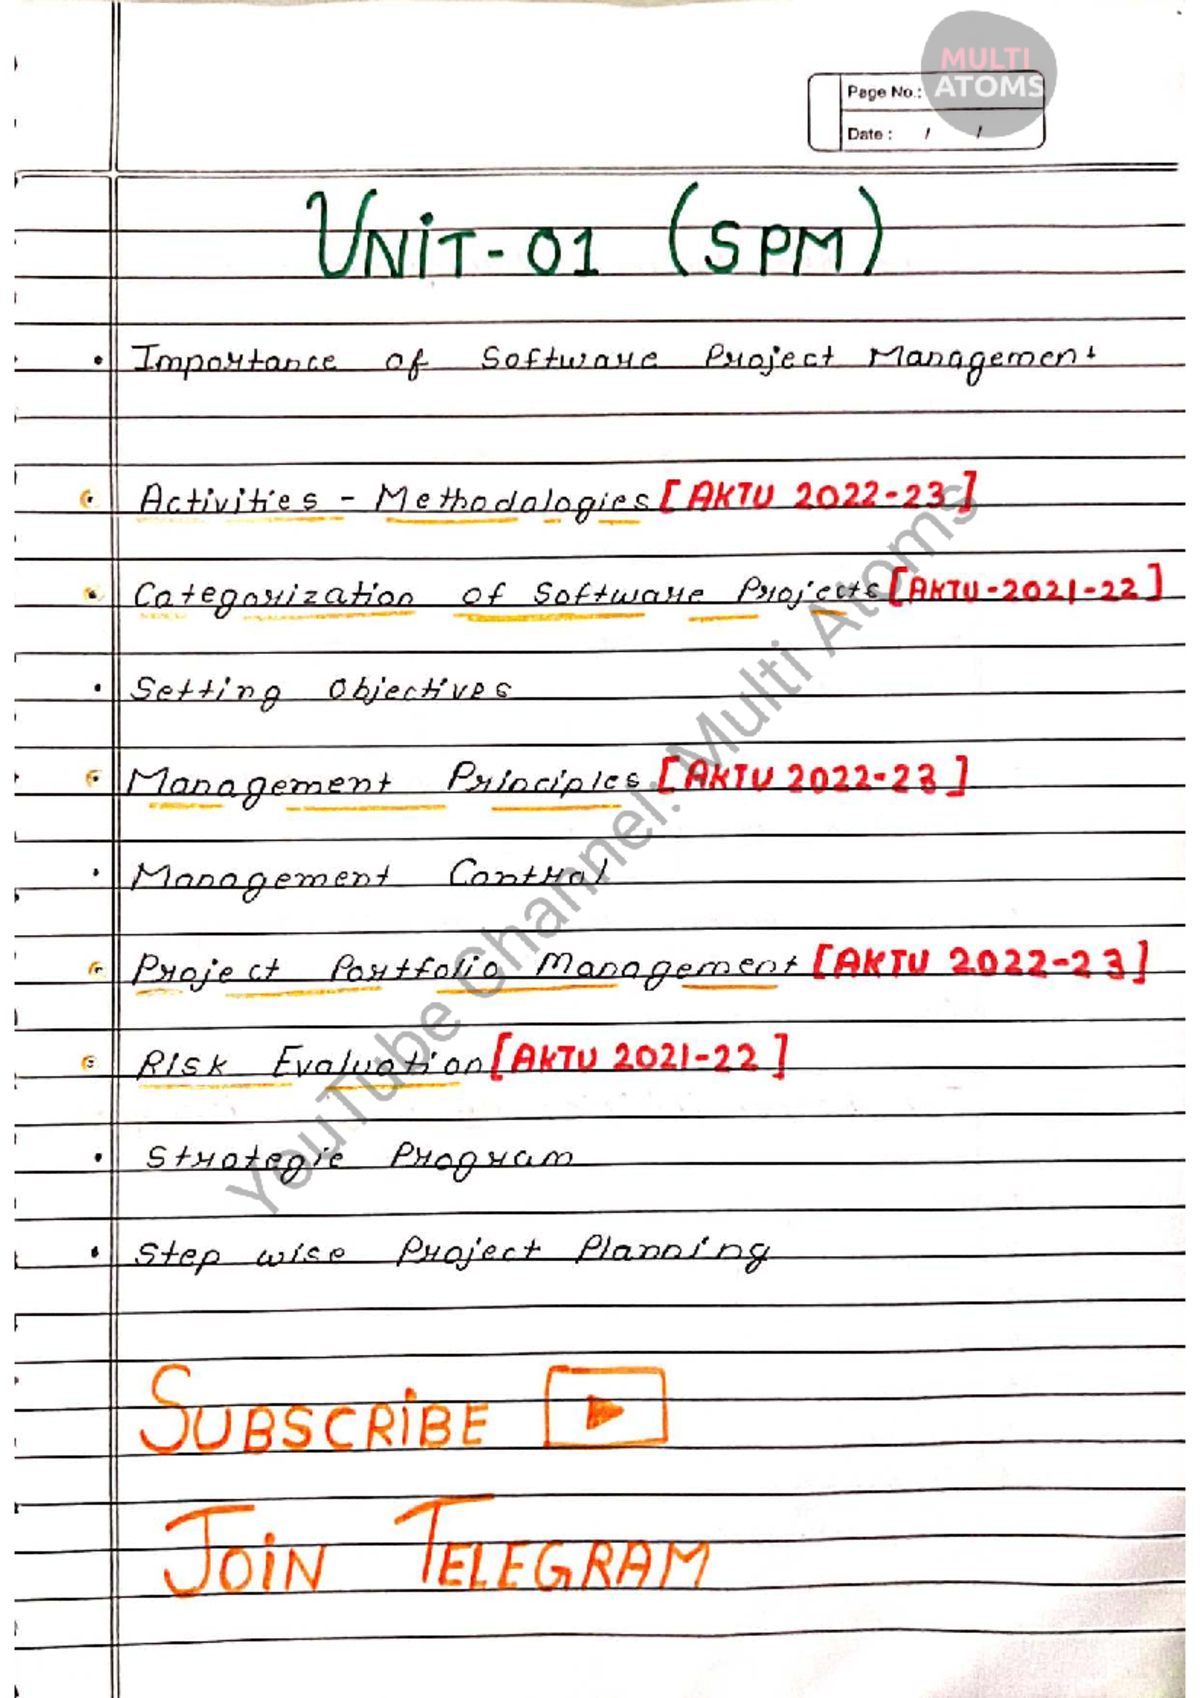 MULTI
ATOMS
Page No.:
Date : / /
UNIT-01 (SPM)
• Importance of Software Project Management
• Activities - Methodologies [AKTU 2022-23]
• Categorization of Software Projects [AKTU-2021-22]
• Setting Objectives
• Management Principles [AKTU 2022-23]
• Management Control
• Project Portfolio Management [AKTU 2022-23]
• Risk Evaluation [AKTU 2021-22]
• Strategic Program
• Step wise Project Planning
SUBSCRIBE
JOIN TELEGRAM
YouTube Channel: Multi Atoms